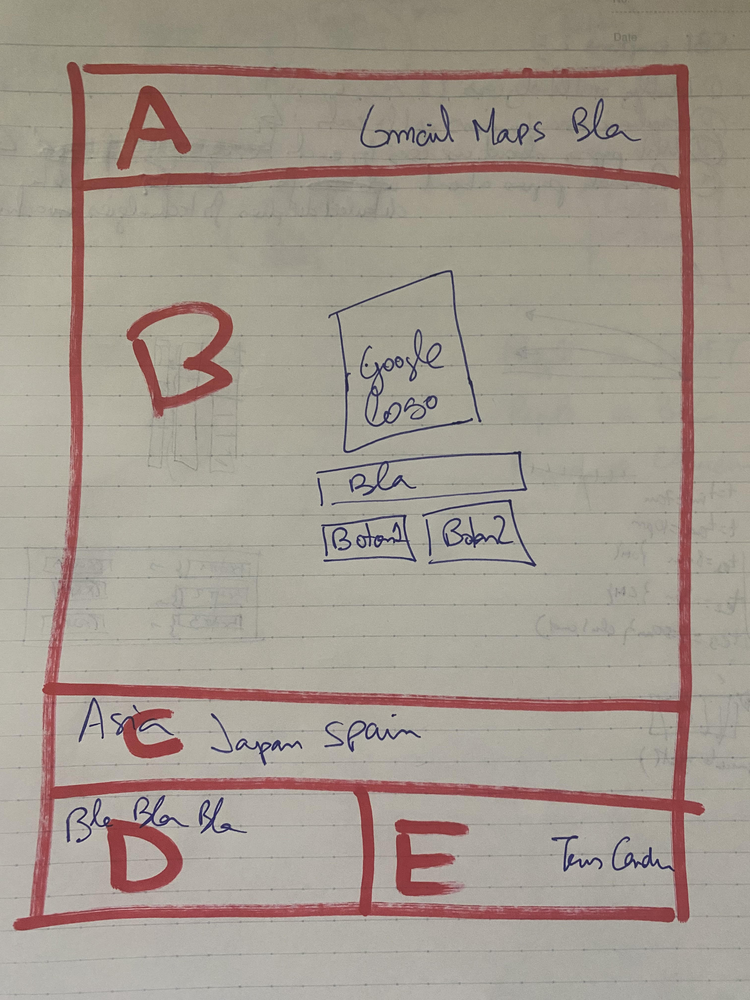 Date
A
Gmail Maps Bla
B
Google
Logo
Bla
Boton1 Boton2
C
Asia Japan Spain
Bla Bla Bla
D
E